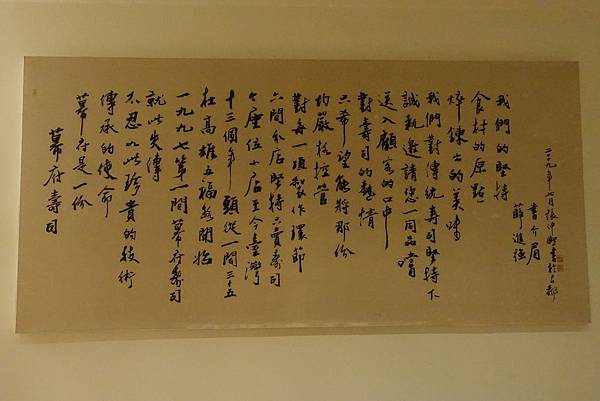 幕府壽司
幕府是一份
傳承的使命
不忍以此珍貴的技術
就此失傳
一九九七第一間幕府壽司
在高雄五福路開始
十三個年頭從一間三十五
個座位小店至今臺灣
六間分店堅持只賣壽司
對每一項製作環節
均嚴格控管
只希望能將那份
對壽司的熱情
送入顧客的口中
誠摯邀請您一同品嚐
我們對傳統壽司堅持下
焠鍊出的美味
食材的原點
我們的堅持
薛進強
介眉
年七月張仲書於古都